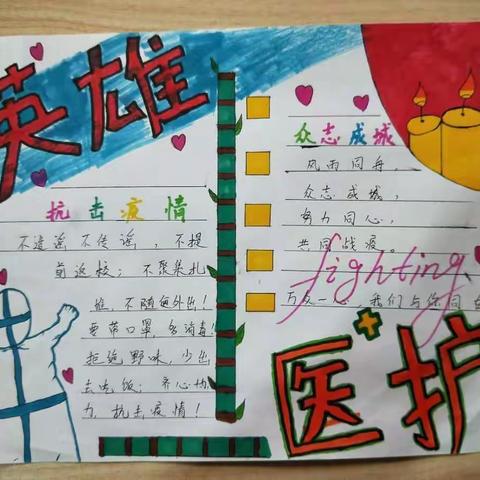 英雄
抗击疫情
不造谣不传谣，不提
前返校；不聚集扎
堆，不随便外出！
要带口罩，多消毒！
拒绝野味，少出
去吃饭；齐心协
力，抗击疫情！
众志成城
风雨同舟，
众志成城，
努力同心，
共同战疫。
fighting
万众一心，我们与你同在
医护